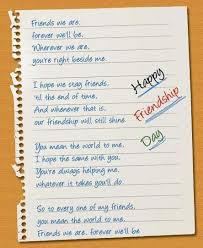 Friends we are.
forever we'll be.
Wherever we are,
you're right beside me.
I hope we stay friends,
'til the end of time.
And whenever that is,
our friendship will still shine.
You mean the world to me.
I hope the same with you.
You're always helping me,
whatever it takes you'll do.
So to every one of my friends,
you mean the world to me.
Friends we are. forever we'll be
Happy
Friendship
Day